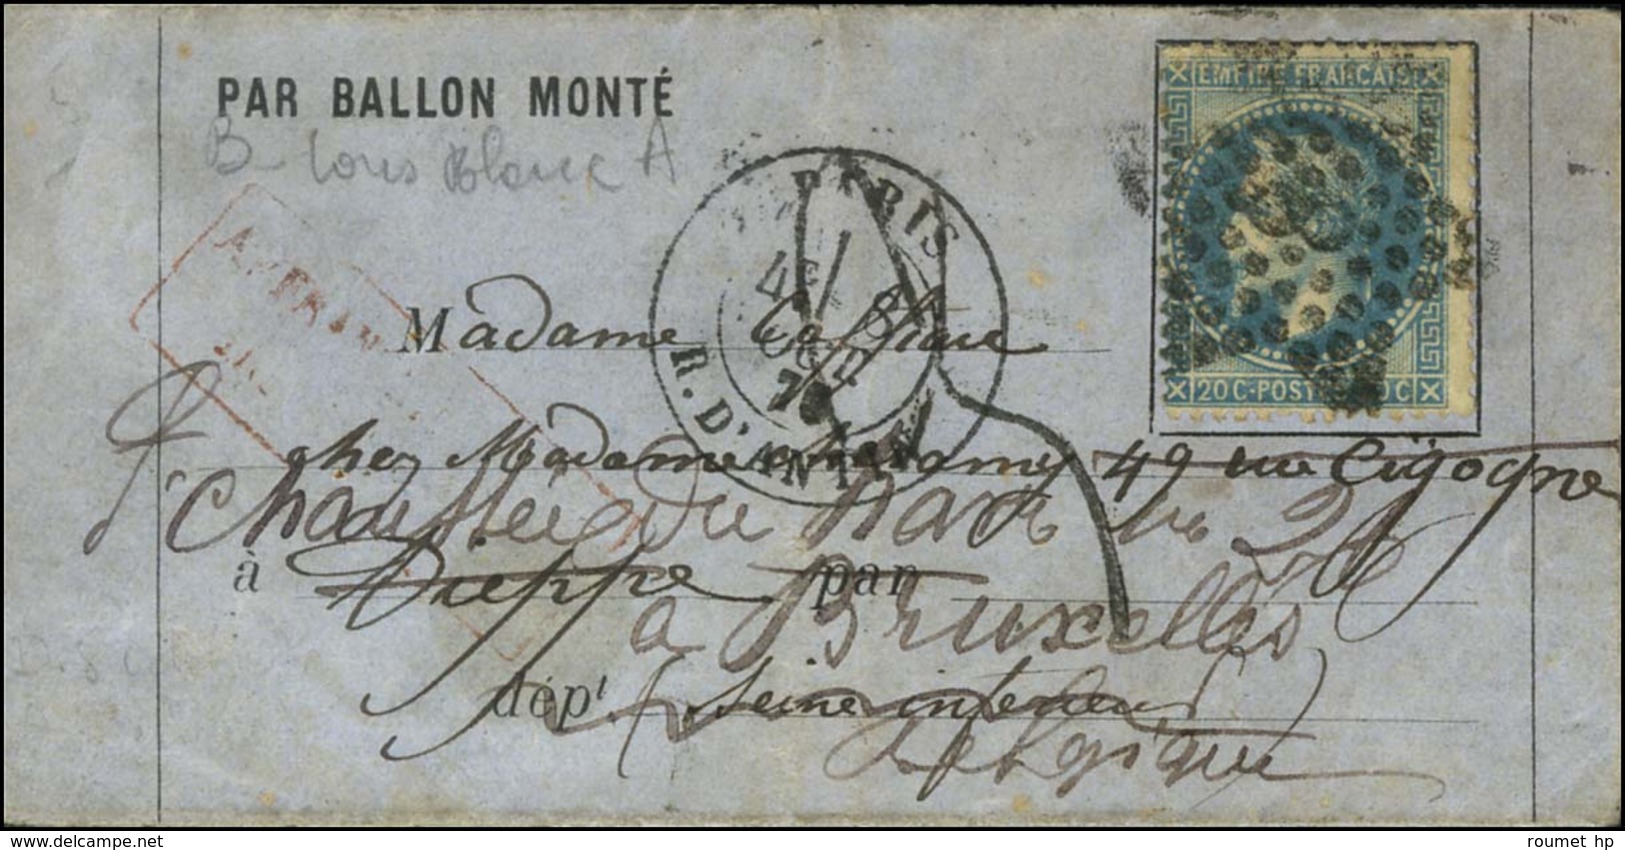 PAR BALLON MONTÉ
B- Louis Blanc A
EMPIRE FRANÇAIS
20 C-POST 0 C
PARIS
4E
8
OCT
70
R. D'ANTIN
AFFRAN
Madame
chez Madame 49 rue Cigogne
Chaussée de
à Dieppe par
à Bruxelles
dépt Seine inférieure
Belgique
www.delcampe.net
roumet hp